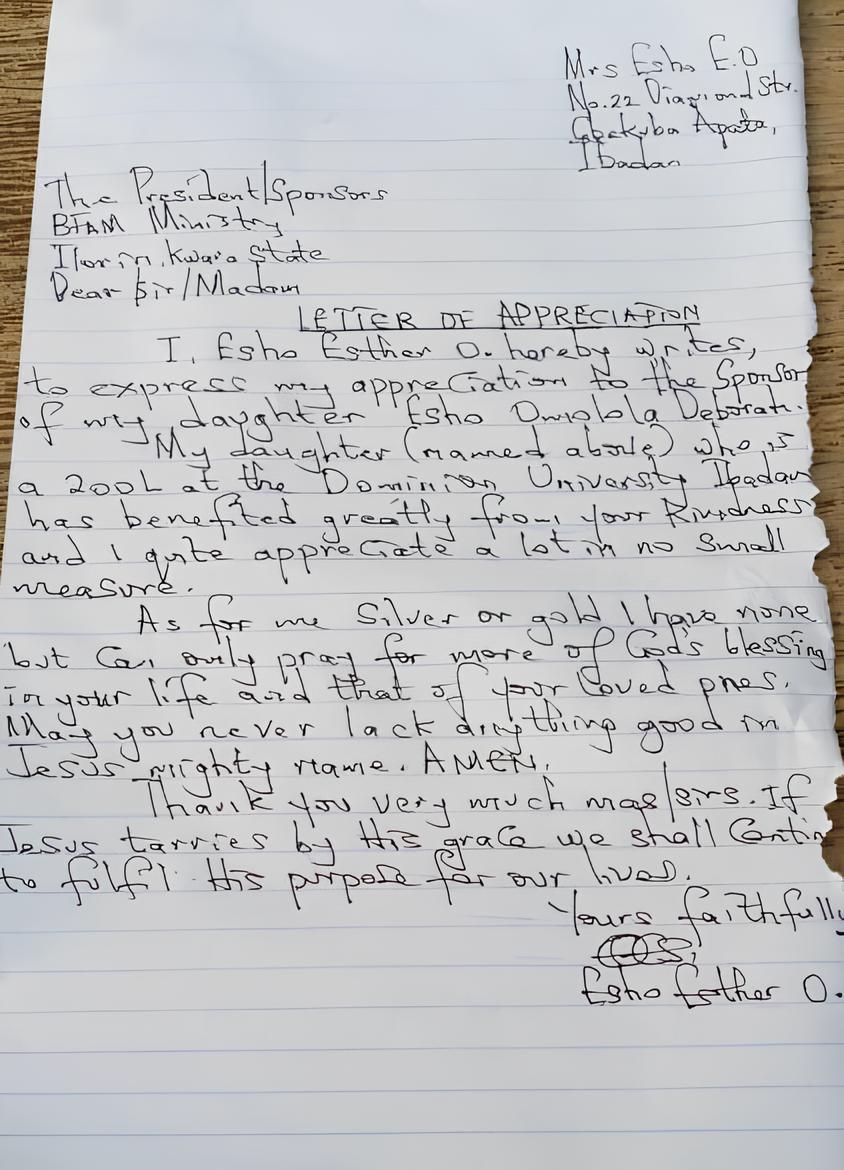 Mrs Esho E.O
No.22 Diamond Str.
Gbekuba Apata,
Ibadan
The President/Sponsors
BFAM Ministry
Ilorin, Kwara State
Dear Sir/Madam
LETTER OF APPRECIATION
I, Esho Esther O. hereby writes,
to express my appreciation to the Sponsor
of my daughter Esho Omolola Deborah.
My daughter (named above) who is
a 200L at the Dominion University Ibadan
has benefited greatly from your Kindness
and I quite appreciate a lot in no small
measure.
As for me Silver or gold I have none
but Can only pray for more of God's blessing
in your life and that of your loved ones.
May you never lack anything good in
Jesus mighty name. AMEN.
Thank you very much mas/sirs. If
Jesus tarries by His grace we shall Contin
to fulfil His purpose for our lives.
Yours faithfully
Esho Esther O.